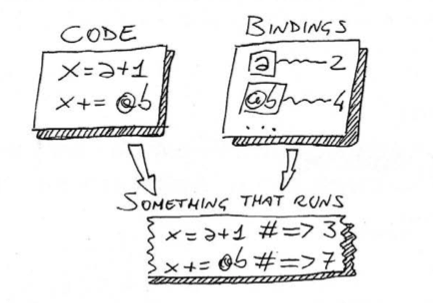 CODE
x=a+1
x+= @b
BINDINGS
a 2
@b 4
...
SOMETHING THAT RUNS
x=a+1 #=> 3
x+= @b #=> 7